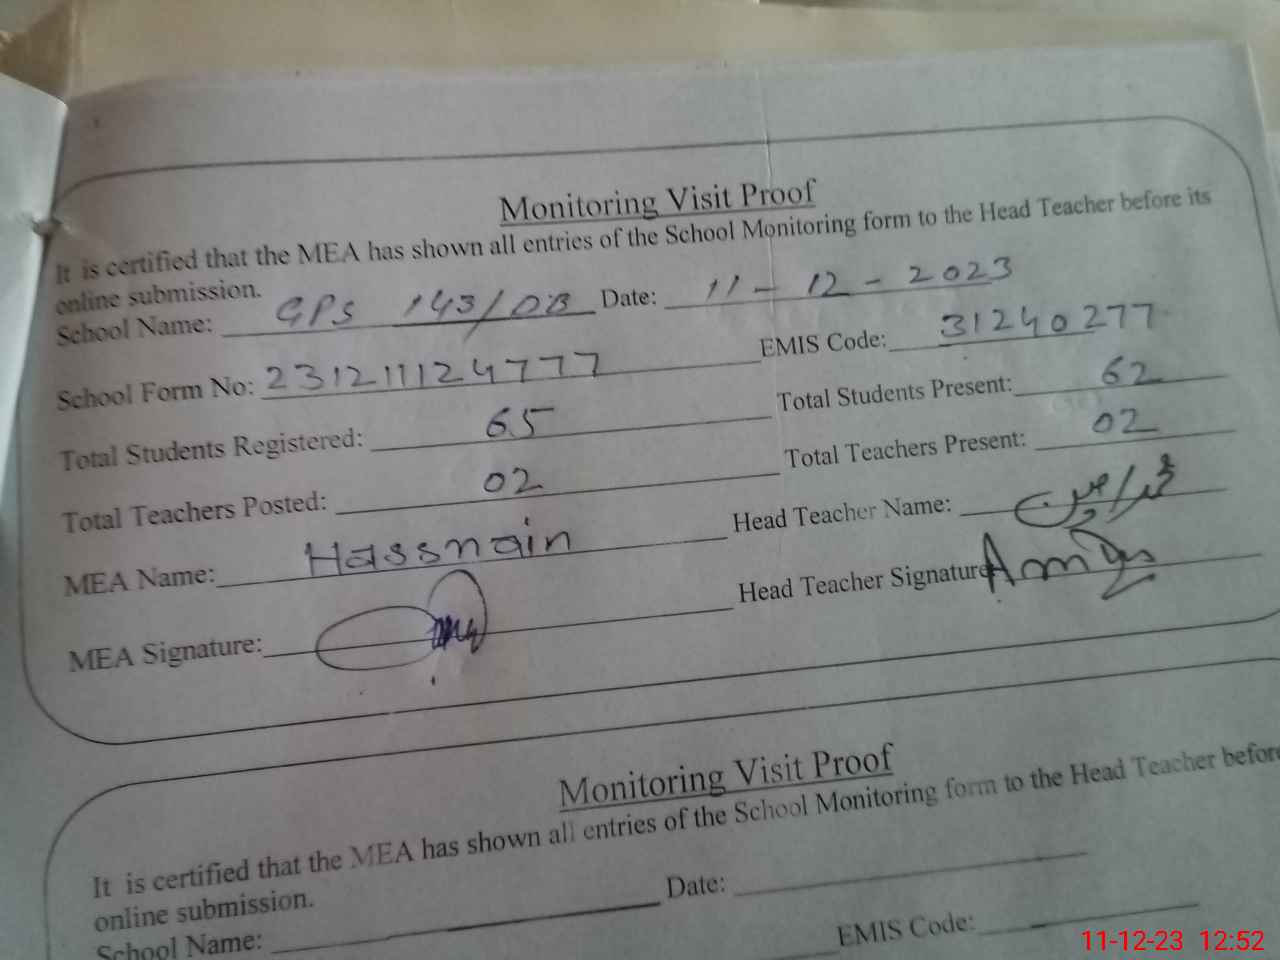 Monitoring Visit Proof
It is certified that the MEA has shown all entries of the School Monitoring form to the Head Teacher before its
online submission.
School Name: GPS 143/DB Date: 11-12-2023
School Form No: 231211124777 EMIS Code: 31240277
Total Students Registered: 65 Total Students Present: 62
Total Teachers Posted: 02 Total Teachers Present: 02
MEA Name: Hassnain Head Teacher Name:
MEA Signature: Head Teacher Signature
Monitoring Visit Proof
It is certified that the MEA has shown all entries of the School Monitoring form to the Head Teacher before
online submission.
School Name: Date:
EMIS Code:
11-12-23 12:52